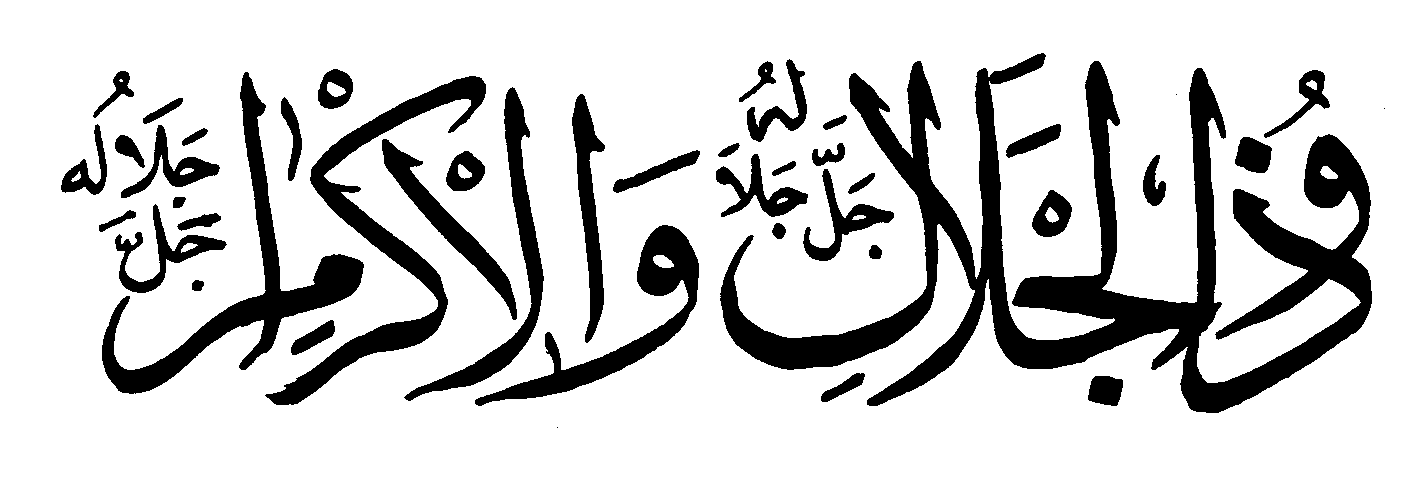 ذُو الْجَلَالِ جَلَّ جَلَالُهُ
وَالْاِكْرَامِ جَلَّ جَلَالُهُ